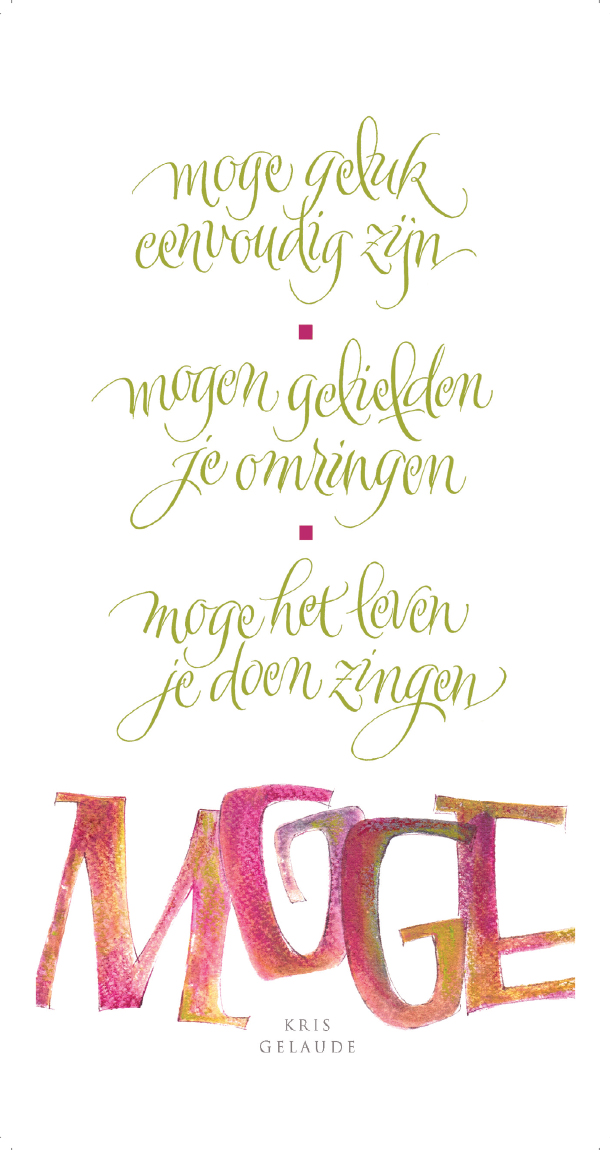 moge geluk
eenvoudig zijn
mogen geliefden
je omringen
moge het leven
je doen zingen
MOGE
KRIS
GELAUDE